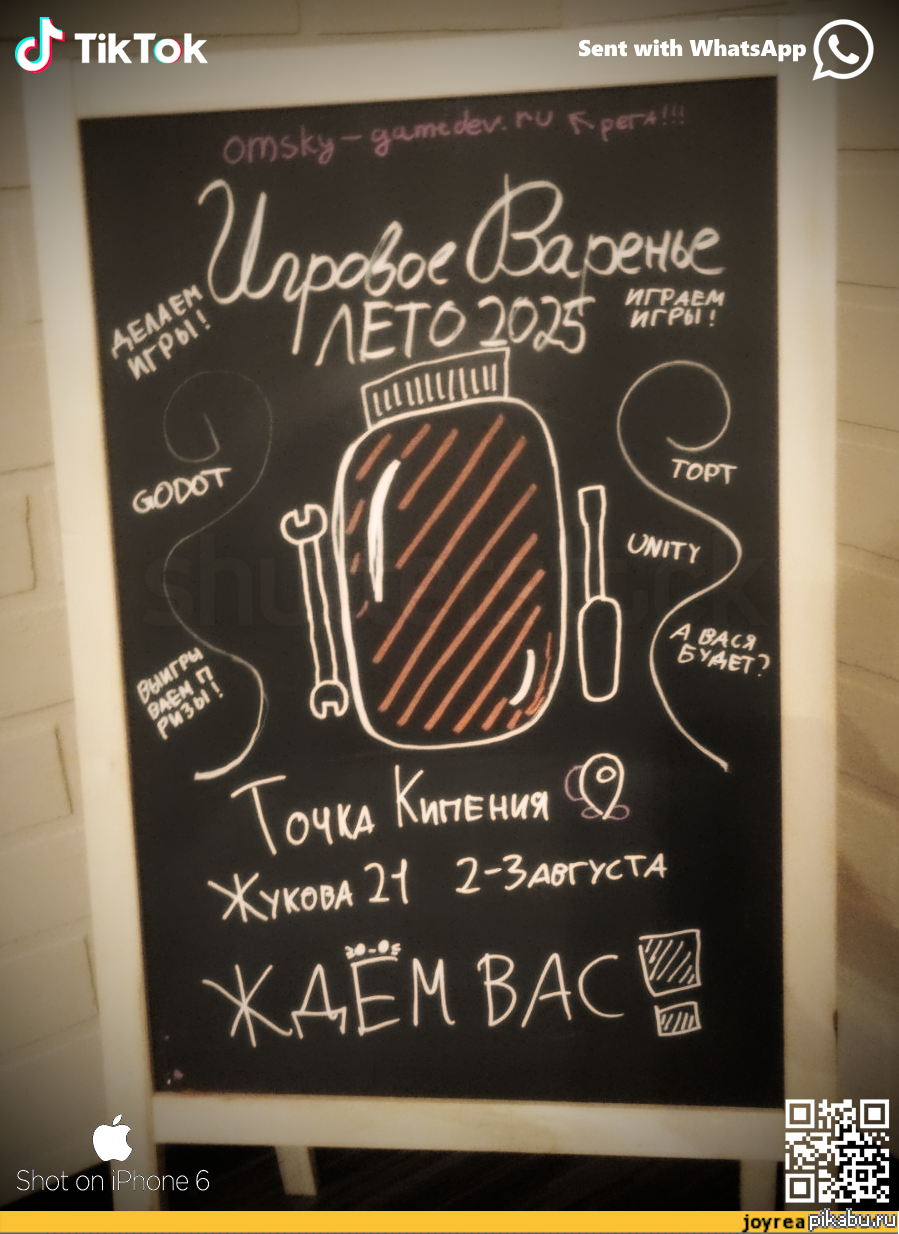 TikTok
Sent with WhatsApp
omsky-gamedev.ru рега!!!
Игровое Варенье
ЛЕТО 2025
ДЕЛАЕМ
ИГРЫ!
ИГРАЕМ
ИГРЫ!
GODOT
ТОРТ
UNITY
ВЫИГРЫ
ВАЕМ П
РИЗЫ!
А ВАСЯ
БУДЕТ?
shutterstock
Точка Кипения
Жукова 21 2-3 АВГУСТА
ЖДЁМ ВАС!
Shot on iPhone 6
joyrea
pikabu.ru